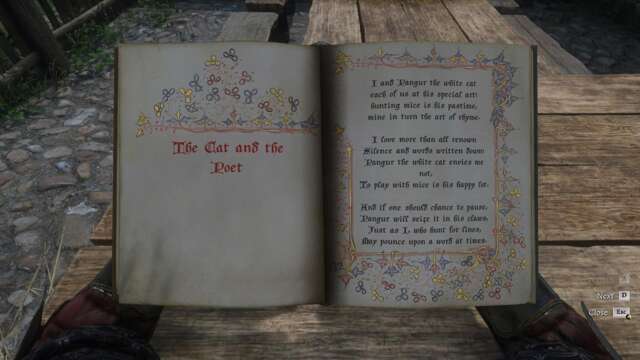 The Cat and the
Poet
I and Pangur the white cat
each of us at his special art:
hunting mice is his pastime,
mine in turn the art of rhyme.
I love more than all renown
Silence and words written down;
Pangur the white cat envies me
not;
To play with mice is his happy lot.
And if one should chance to pause,
Pangur will seize it in his claws.
Just as I, who hunt for lines,
May pounce upon a word at times.
Next D
Close Esc